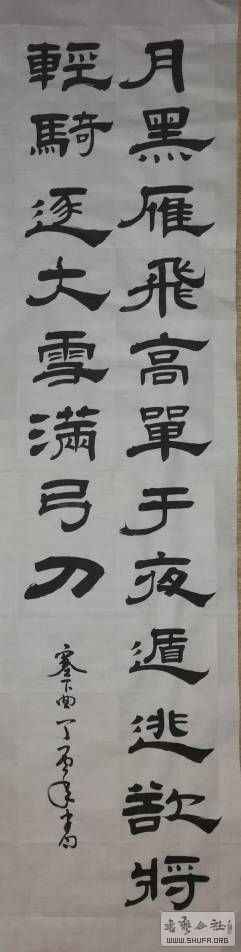 月黑雁飛高單于夜遁逃欲將
輕騎逐大雪滿弓刀
塞下曲丁酉年書
书艺公社
WWW.SHUFA.ORG